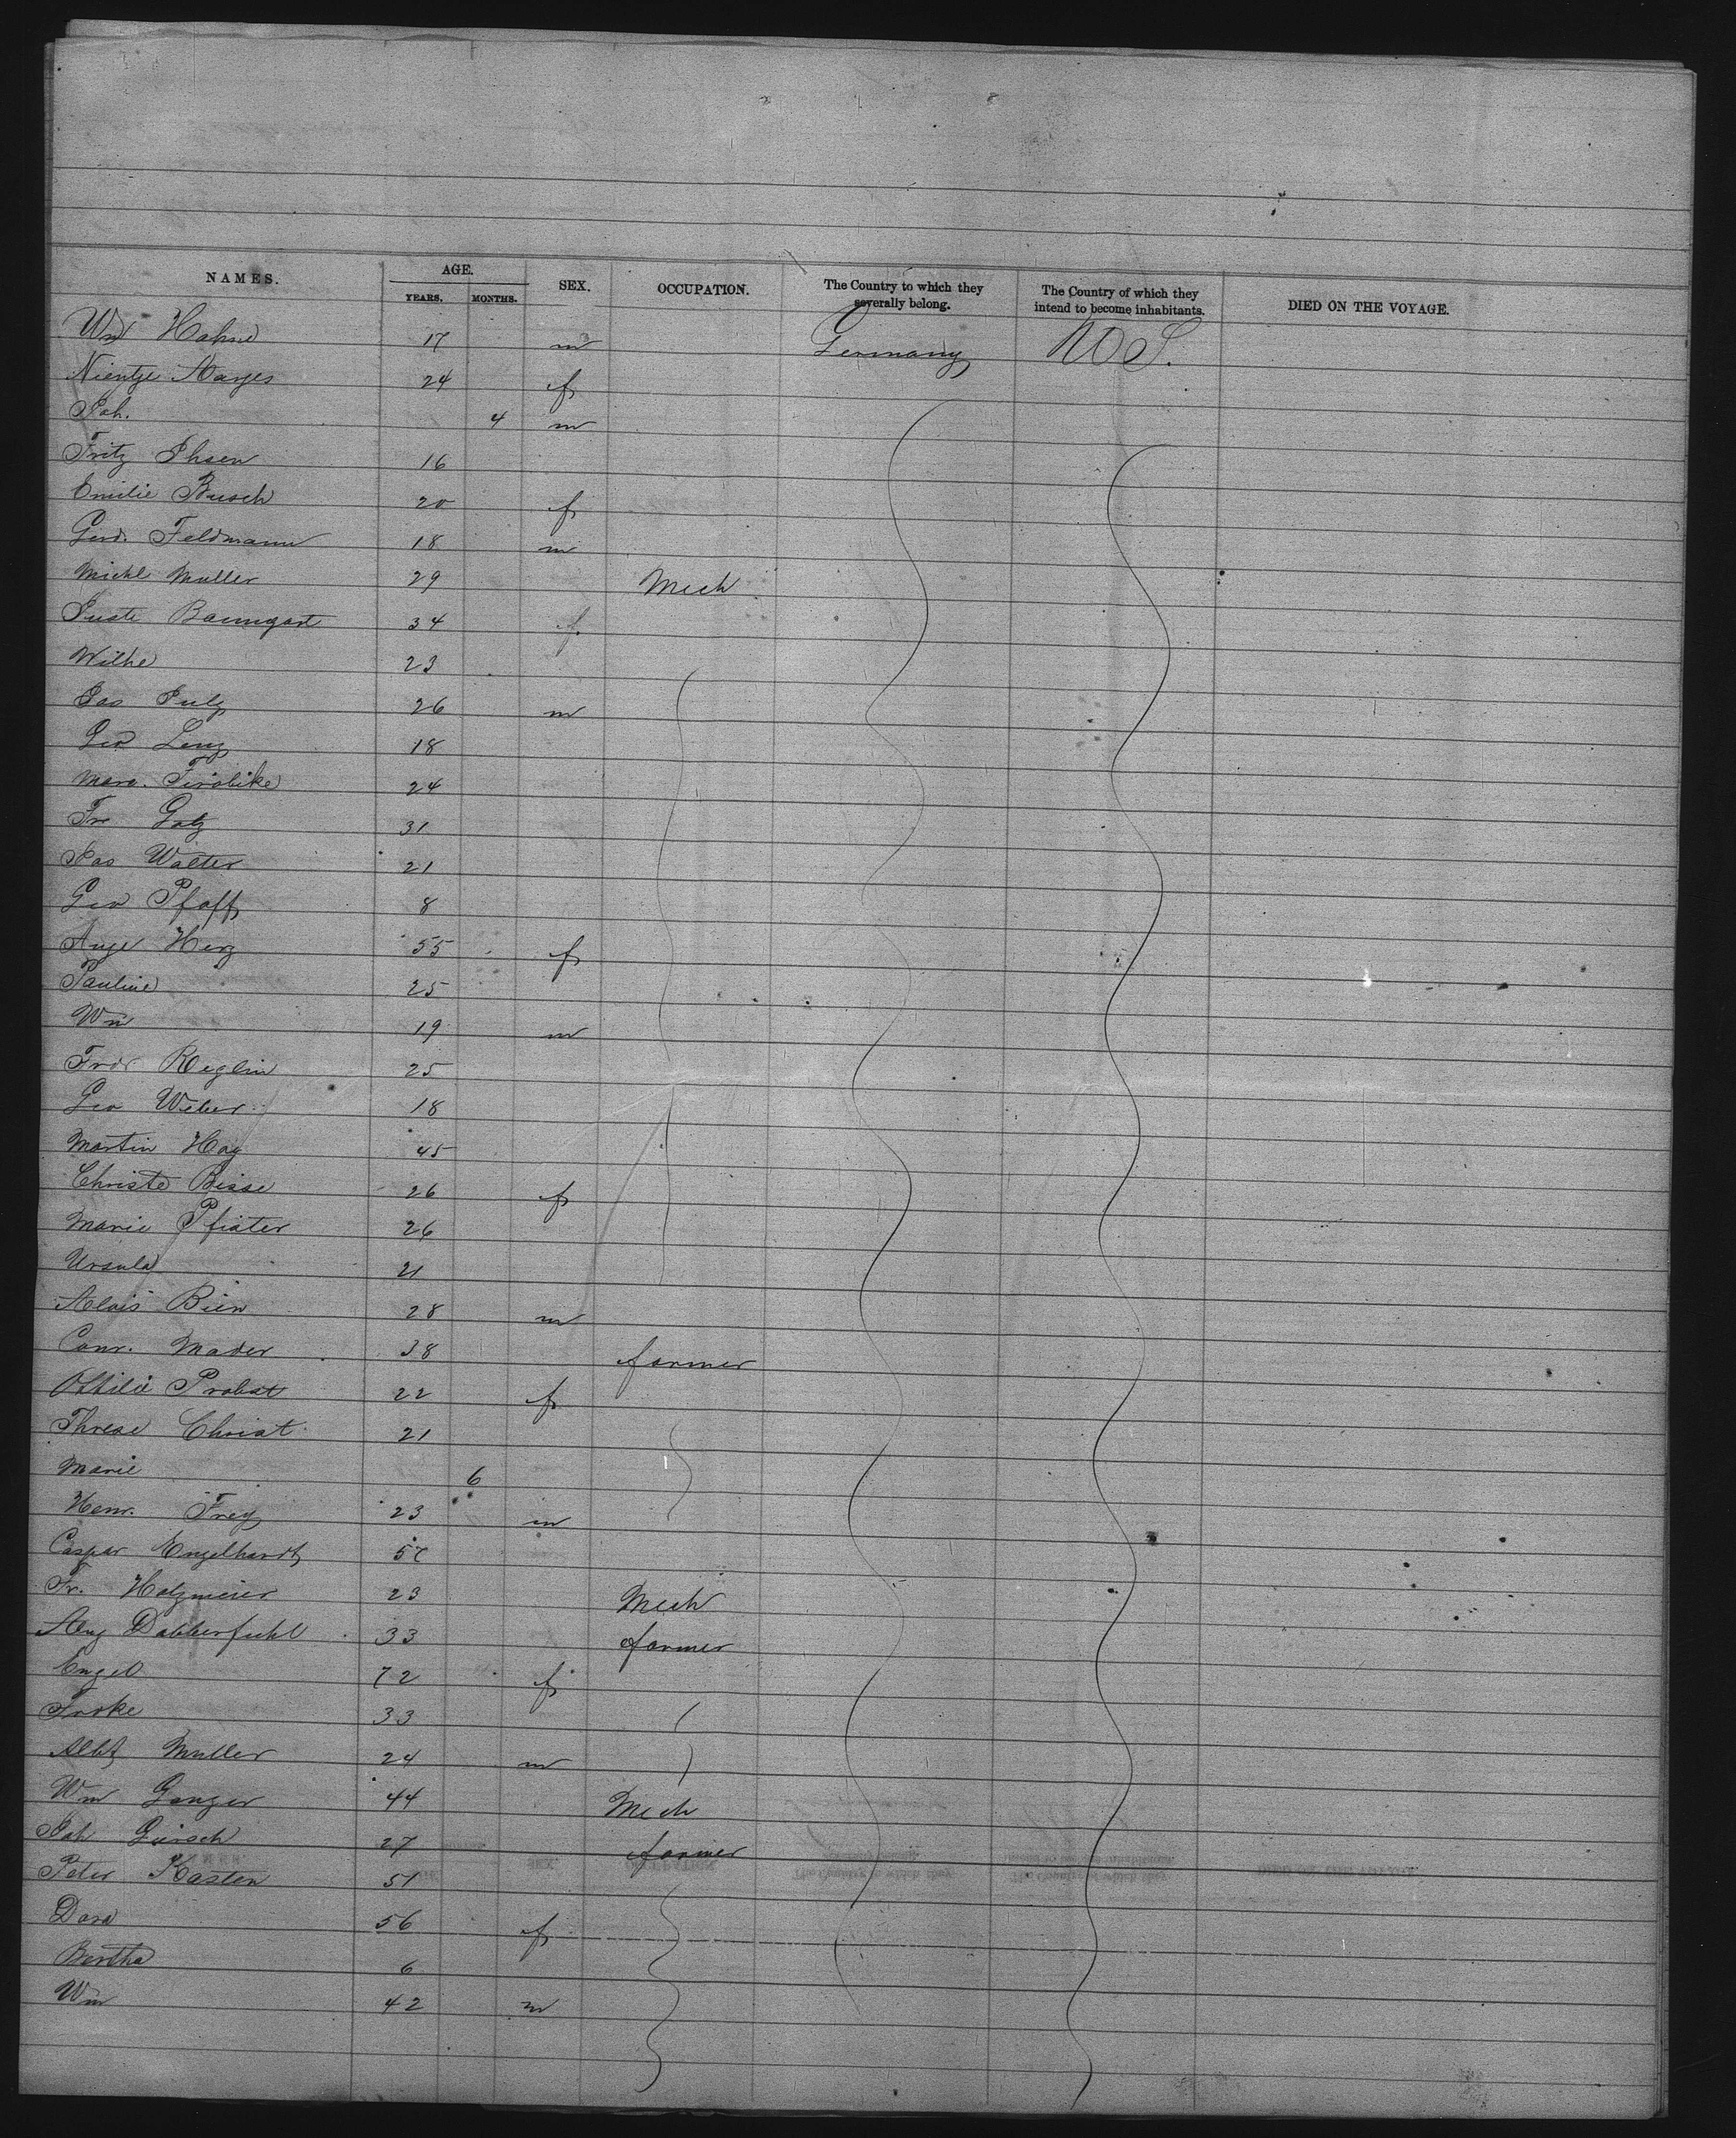 NAMES. AGE. YEARS. MONTHS. SEX. OCCUPATION. The Country to which they severally belong. The Country of which they intend to become inhabitants. DIED ON THE VOYAGE.
Wm Hahne 17 m Germany U.S.
Nientje Harjes 24 f
Joh. 4 m
Fritz Ihsen 16
Emilie Busch 20 f
Gerd. Feldmann 18 m
Michl Muller 29 Mech
Juste Baumgart 34 f
Wilhe 23
Jas 26 m
Geo Lenz 18
Marg. 24
Fr Gotz 31
Jas Walter 21
Geo Pfaff 8
Auge Herz 55 f
Pauline 25
Wm 19 m
Frdr Reglin 25
Geo Weber 18
Martin Hay 45
Christe Bisse 26 f
Marie Pfister 26
Ursula 21
Alois Bien 28 m
Conr. Mader 38 farmer
Ottilie Probst 22 f
Threse Christ 21
Marie 6
Henr. Frey 23 m
Caspar Engelhardt
Fr. Holzmeier 23 Mech
Aug Dabberfuhl 33 farmer
Engel 72 f
Frdke 33
Albt Muller 24 m
Wm Ganger 44 Mech
Joh Giersch 27 farmer
Peter Kasten 51
Dora 56 f
Bertha 6
Wm 42 m